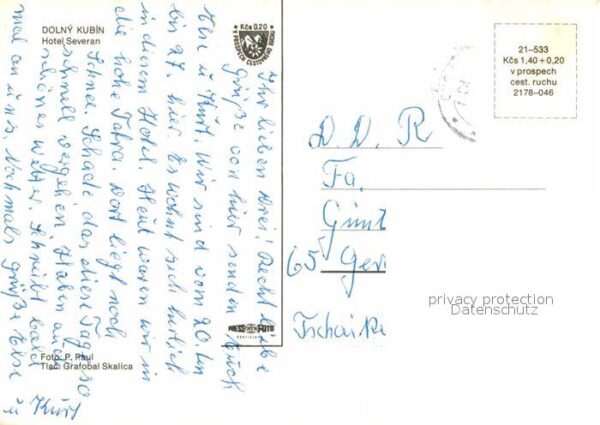 DOLNÝ KUBÍN
Hotel Severan
Kčs 0,20
V PROSPECH CESTOVNÉHO RUCHU
21–533
Kčs 1,40+0,20
v prospech
cest. ruchu
2178–046
Ihr lieben Drei! Recht liebe
Grüße von hier senden Euch
Else u Kurt. Wir sind vom 20 bis
bis 27. hier. Es wohnt sich herrlich
in diesem Hotel. Heut waren wir in
die hohe Tatra. Dort liegt noch
Schnee. Schade das diese Tage so
schnell vergehen. Haben auch
schönes Wetter. Schreibt bald
mal an uns. Nochmals Grüße Else
u Kurt
D. D. R
Fa.
Günt
65 Ger
Tschaik
PRESSFOTO
BRATISLAVA
Foto: P. Paul
Tlač: Grafobal Skalica
privacy protection
Datenschutz